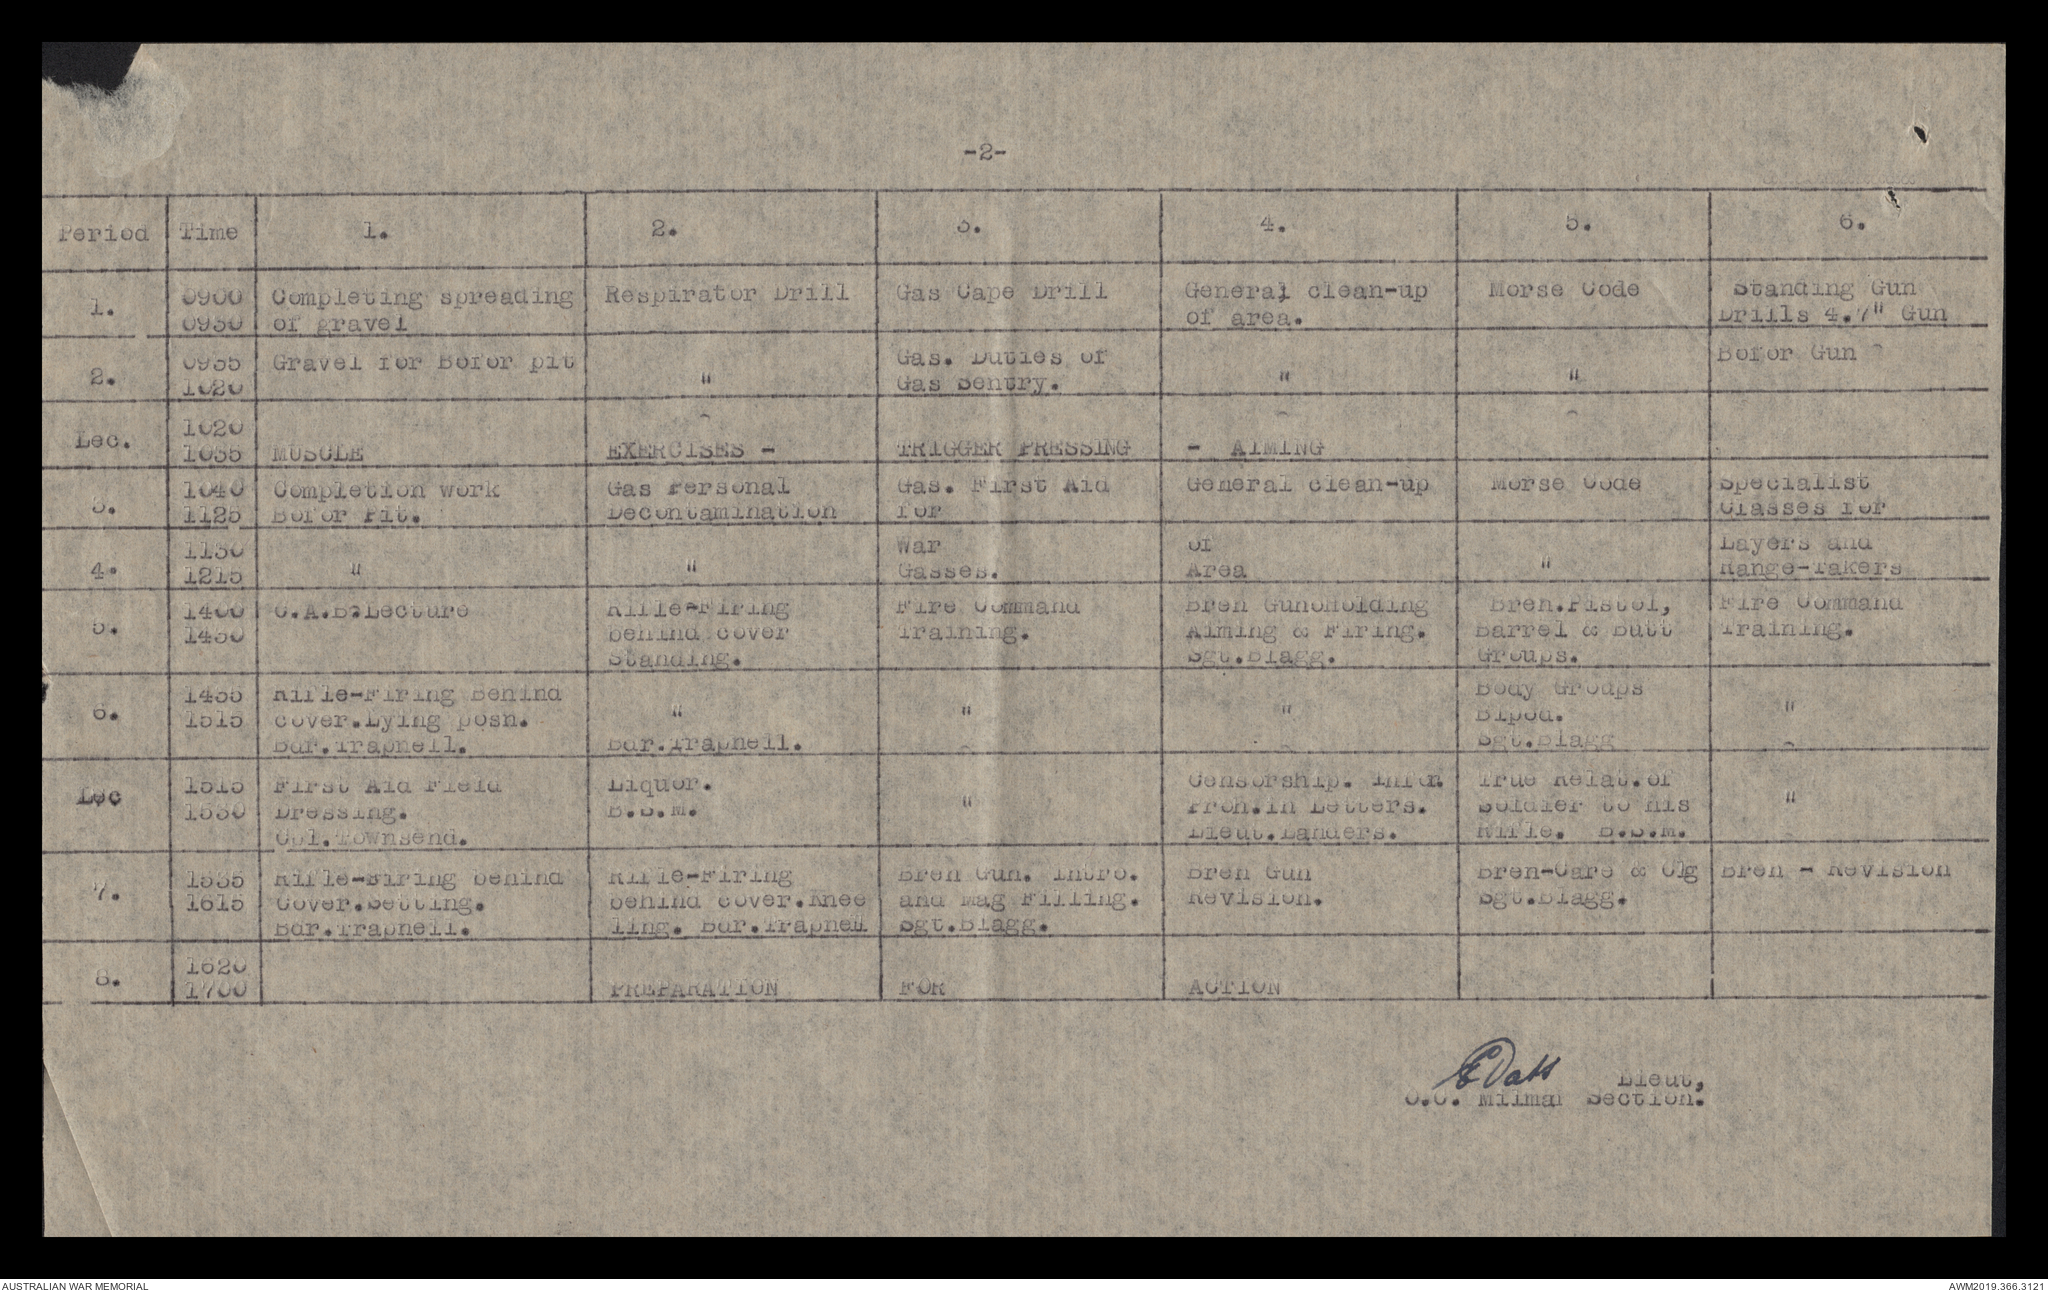 -2-
Period Time 1. 2. 3. 4. 5. 6.
1. 0900 Completing spreading Respirator Drill Gas Cape Drill General clean-up Morse Code Standing Gun
0930 of gravel of area. Drills 4.7" Gun
2. 0935 Gravel for Bofor pit " Gas. Duties of " " Bofor Gun
1020 Gas Sentry.
Lec. 1020
1035 MUSCLE EXERCISES - TRIGGER PRESSING - AIMING
3. 1040 Completion work Gas Personal Gas. First Aid General clean-up Morse Code Specialist
1125 Bofor Pit. Decontamination for Classes for
4. 1130 " " War of " Layers and
1215 Gasses. Area Range-Takers
5. 1400 C.A.B.Lecture Rifle-Firing Fire Command Bren Gun Holding Bren.Pistol, Fire Command
1430 behind cover Training. Aiming & Firing. Barrel & Butt Training.
Standing. Sgt.Blagg. Groups.
6. 1435 Rifle-Firing Behind " " " Body Groups "
1515 cover.Lying posn. Bipod.
Bdr.Trapnell. Bdr.Trapnell. Sgt.Blagg
Lec 1515 First Aid Field Liquor. " Censorship. Infn. True Relat.of "
1530 Dressing. B.S.M. Proh.in Letters. Soldier to his
Cpl.Townsend. Lieut.Landers. Rifle. B.S.M.
7. 1535 Rifle-Biring behind Rifle-Firing Bren Gun. Intro. Bren Gun Bren-Care & Clg Bren - Revision
1615 Cover.Setting. behind cover.Knee and Mag Filling. Revision. Sgt.Blagg.
Bdr.Trapnell. ling. Bdr.Trapnell Sgt.Blagg.
8. 1620
1700 PREPARATION FOR ACTION
Lieut,
O.C. Milman Section.
AUSTRALIAN WAR MEMORIAL
AWM2019.366.3121